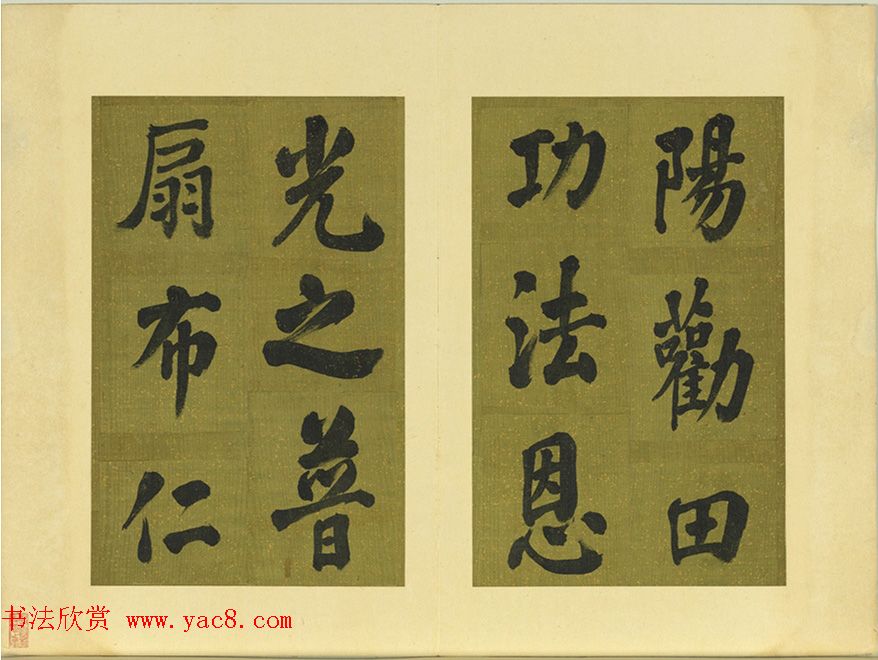 陽勸田
功法恩
光之普
扇布仁
书法欣赏 www.yac8.com